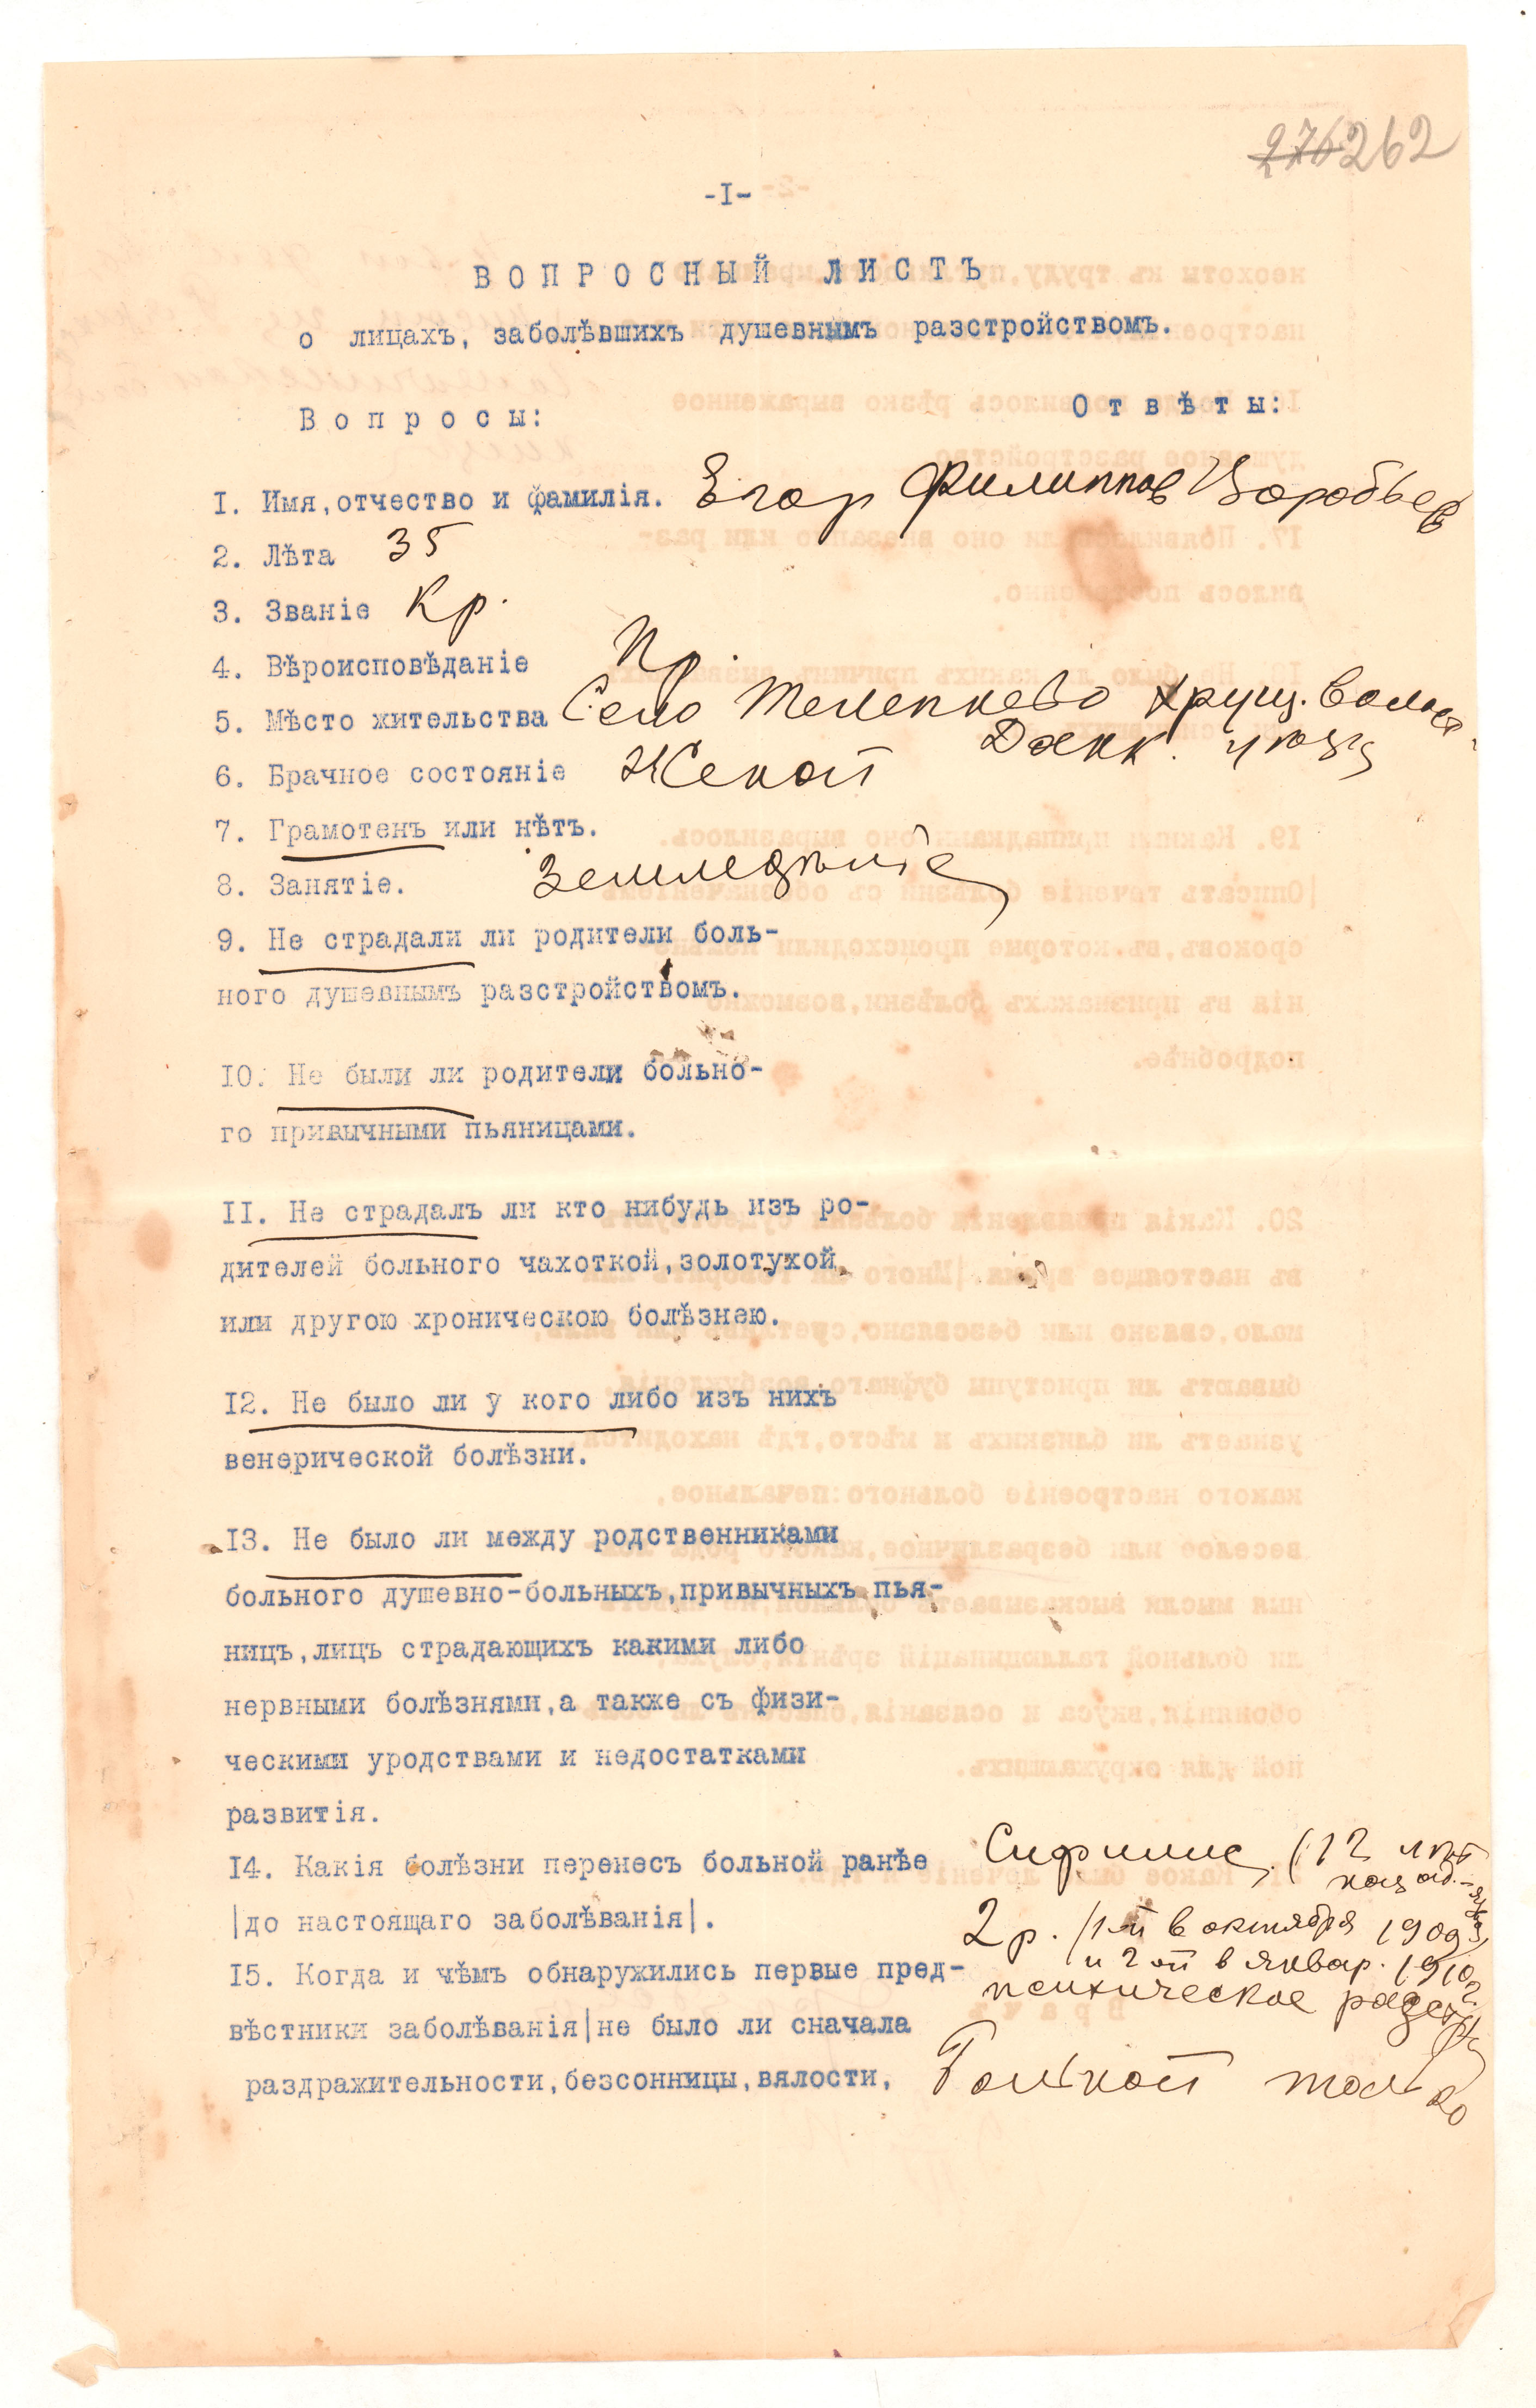 276 262
-I-
ВОПРОСНЫЙ ЛИСТЪ
о лицахъ, заболѣвшихъ душевнымъ разстройствомъ.
Вопросы: Отвѣты:
I. Имя,отчество и фамилія. Егор Филиппов Воробьев
2. Лѣта 35
3. Званіе Кр.
4. Вѣроисповѣданіе Пр.
5. Мѣсто жительства Село Телепнево Хрущ. Волост.
Данк. уѣзд
6. Брачное состояніе Женат
7. Грамотенъ или нѣтъ.
8. Занятіе. Земледѣліе
9. Не страдали ли родители боль-
ного душевнымъ разстройствомъ.
10. Не были ли родители больно-
го привычными пьяницами.
II. Не страдалъ ли кто нибудь изъ ро-
дителей больного чахоткой,золотухой
или другою хроническою болѣзнею.
I2. Не было ли у кого либо изъ нихъ
венерической болѣзни.
I3. Не было ли между родственниками
больного душевно-больныхъ,привычныхъ пья-
ницъ,лицъ страдающихъ какими либо
нервными болѣзнями,а также съ физи-
ческими уродствами и недостатками
развитія.
I4. Какія болѣзни перенесъ больной ранѣе Сифилис (12 лѣт
назад
|до настоящаго заболѣванія|. 2 р. /1-й в октября 1909
I5. Когда и чѣмъ обнаружились первые пред- и 2 ой в январ. 1910
психическое
вѣстники заболѣванія|не было ли сначала
раздражительности,безсонницы,вялости, Больной только